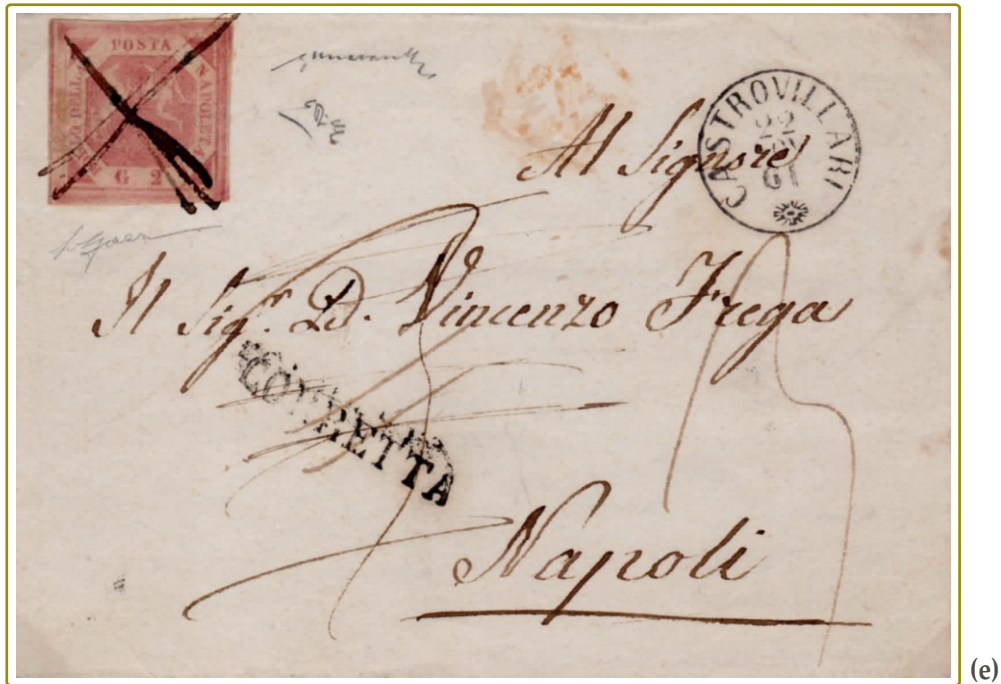 POSTA
NAPOLET
BOLLO DELLA
G. 2
CASTROVILLARI
22
61
Al Signore
Il Sig.r D. Vincenzo Frega
CORRETTA
Napoli
(e)